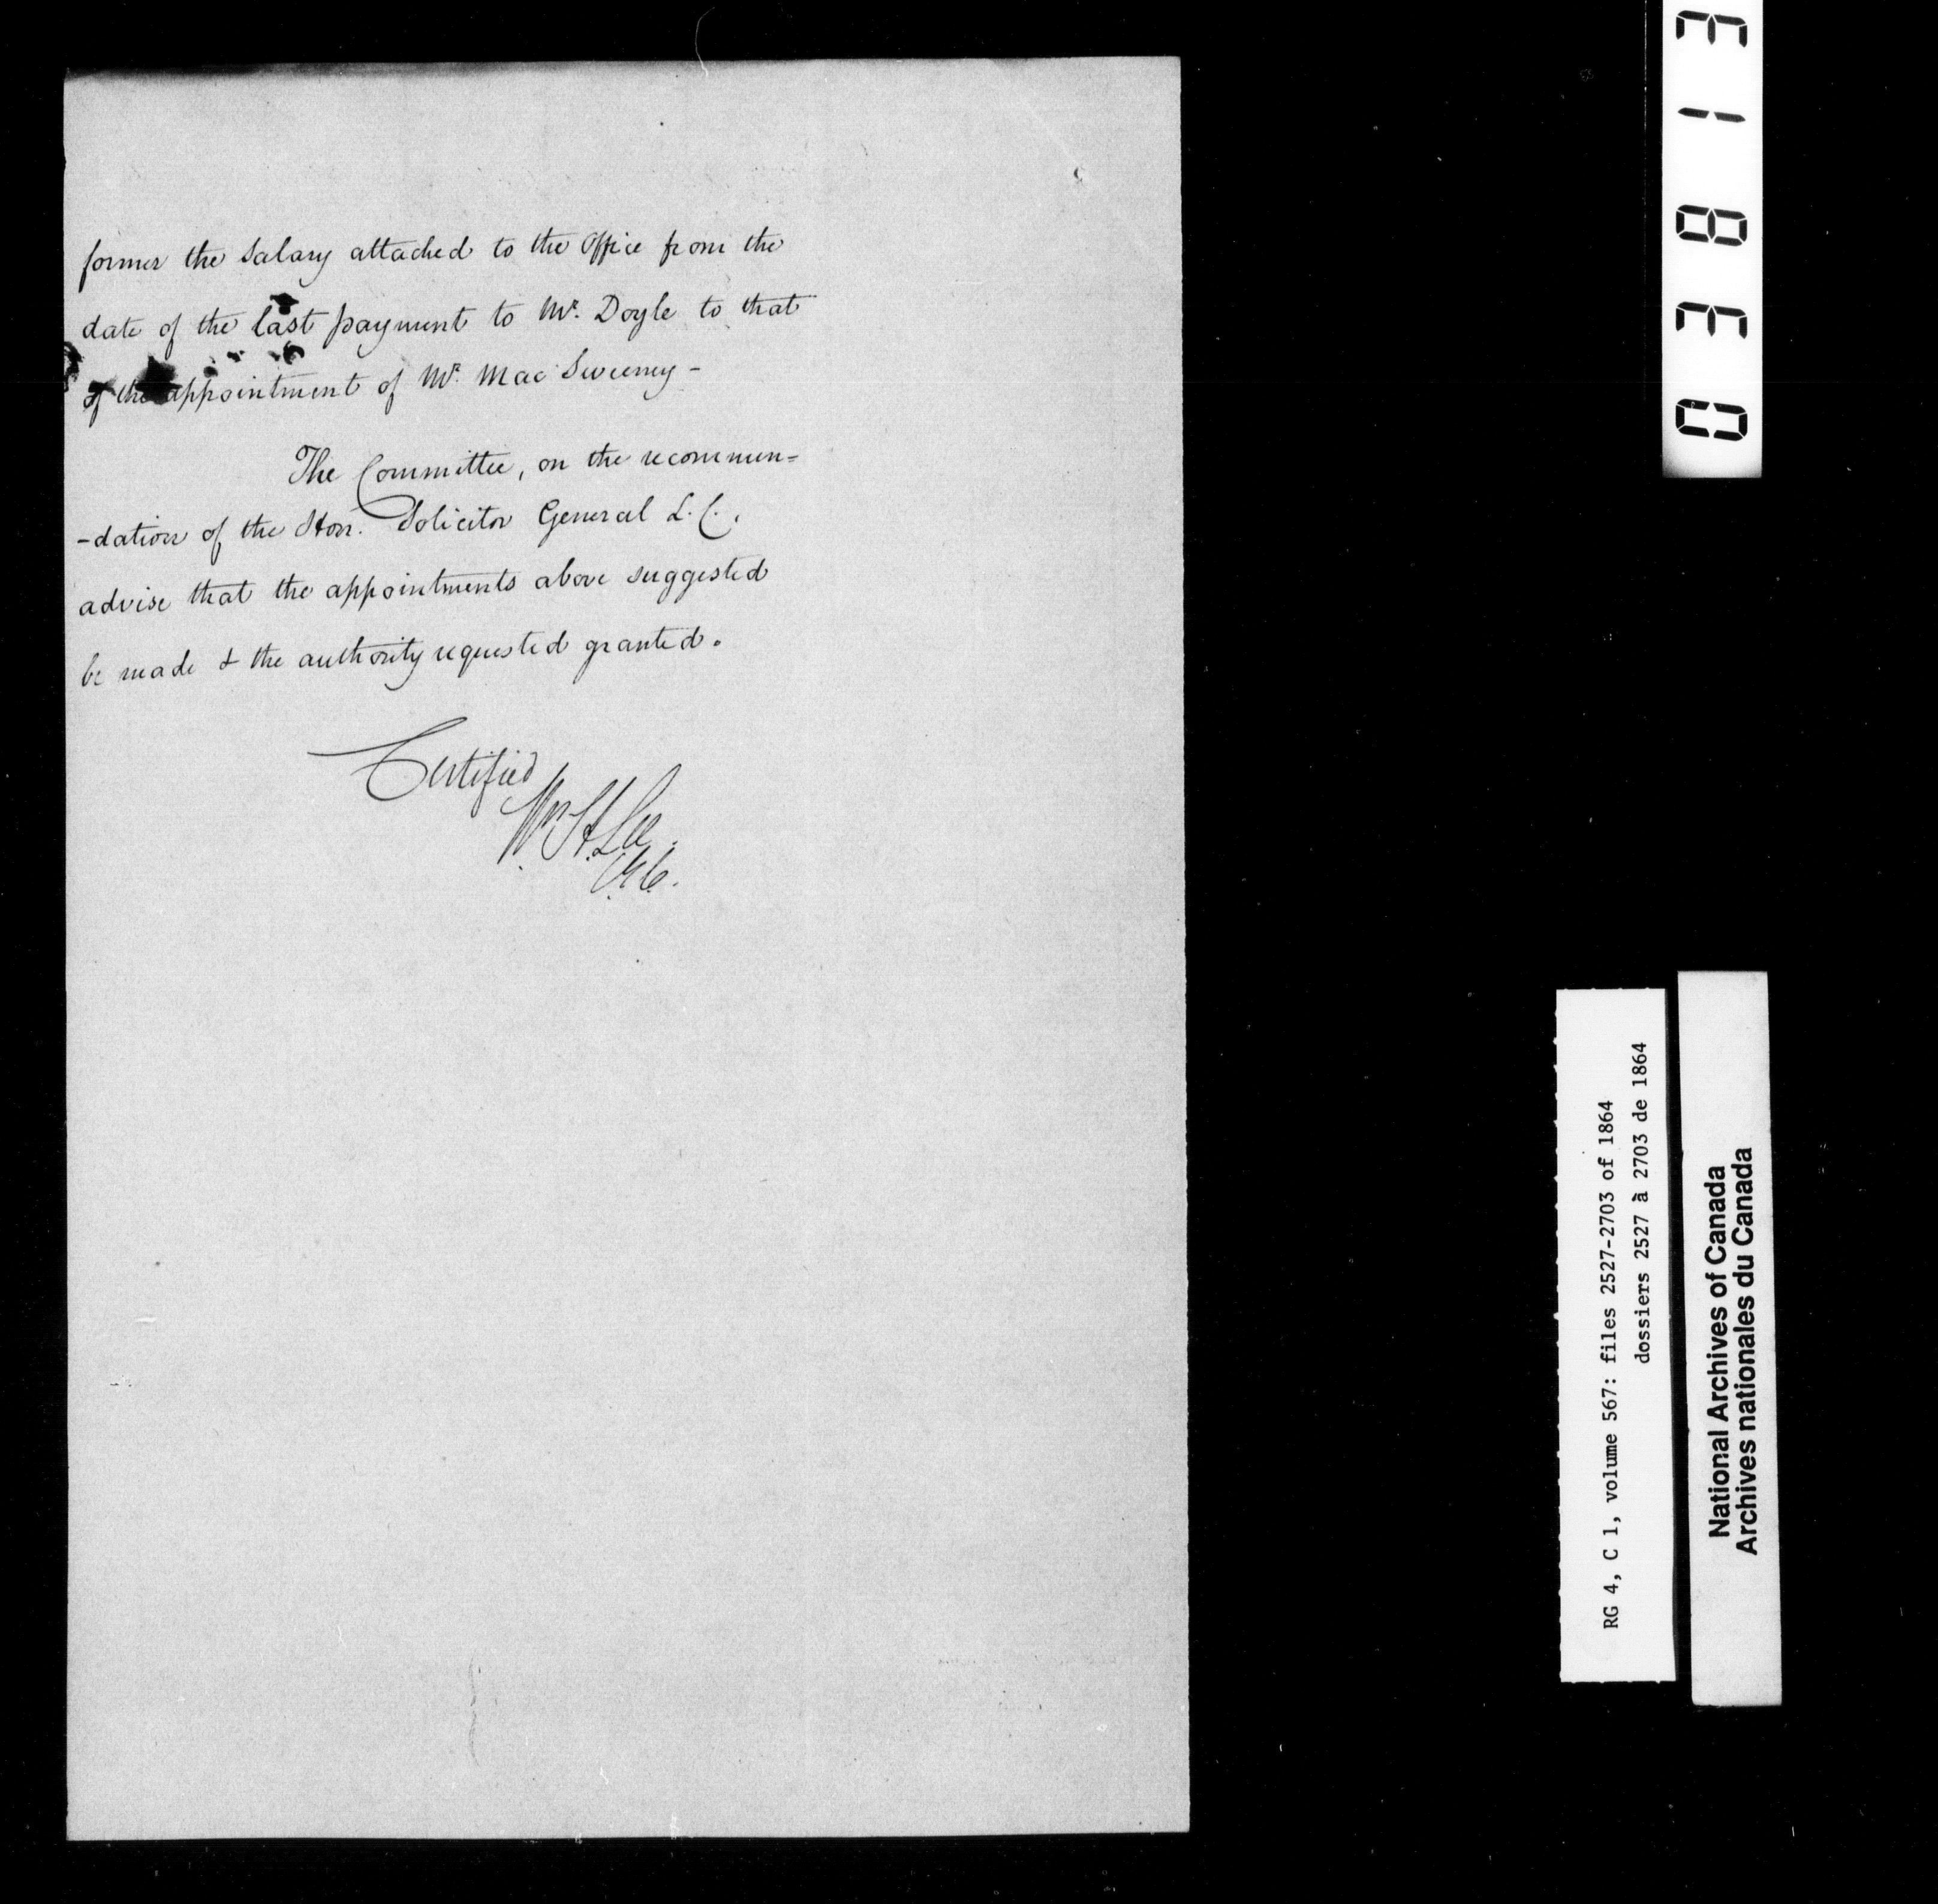 former the Salary attached to the Office from the
date of the last payment to Mr. Doyle to that
of the appointment of Mr. Mac Sweeney -
The Committee, on the recommen=
-dation of the Hon. Solicitor General L. C.
advise that the appointments above suggested
be made & the authority requested granted.
Certified
Wm H Lee.
03813
RG 4, C 1, volume 567: files 2527-2703 of 1864
dossiers 2527 à 2703 de 1864
National Archives of Canada
Archives nationales du Canada